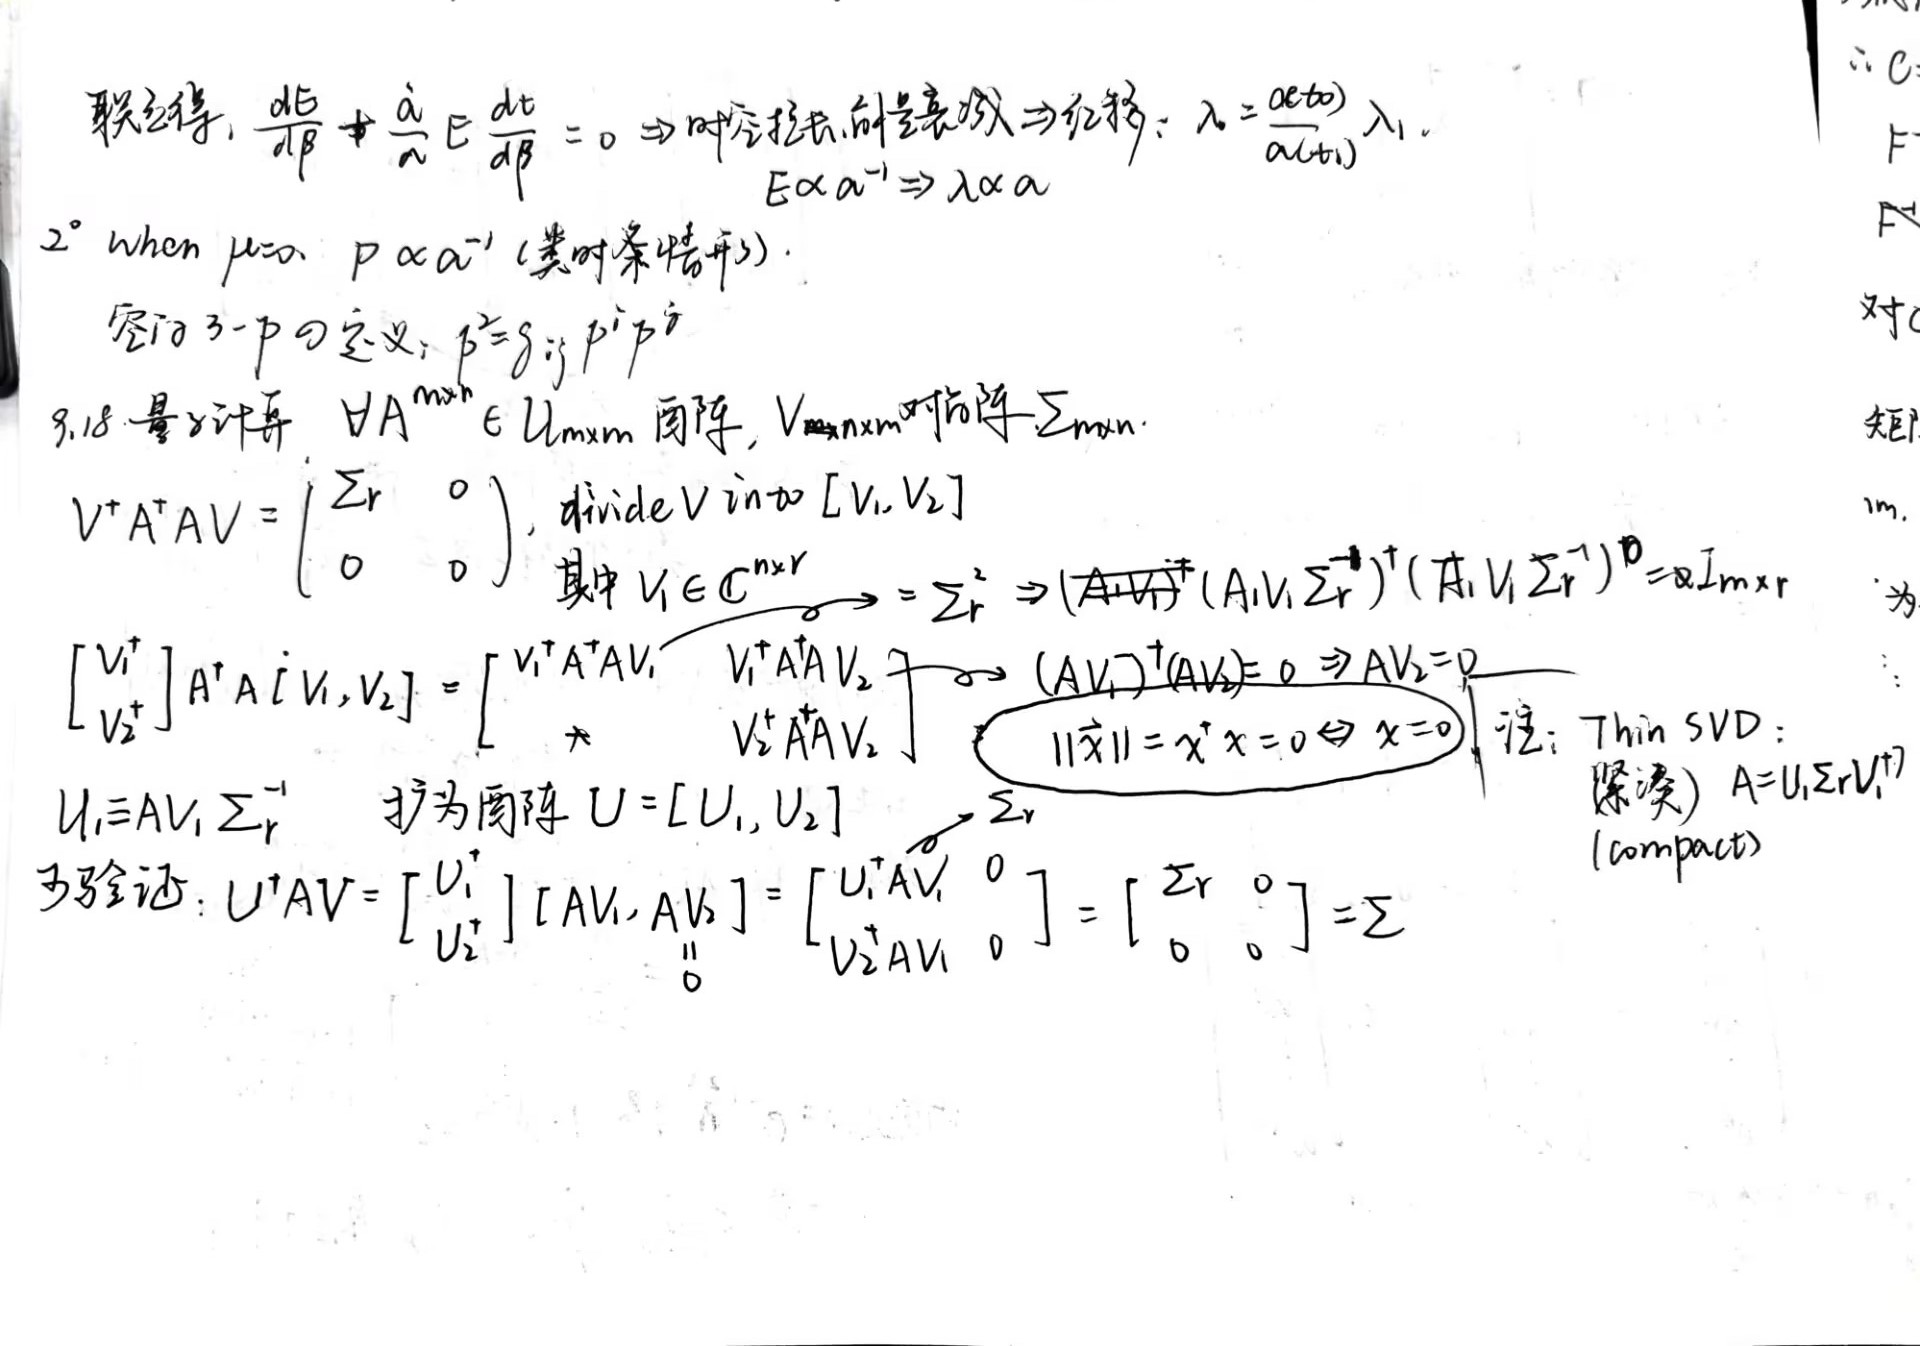 联立得, dE/dβ + ȧ/a E dt/dβ = 0 ⇒ 时空拉长,能量衰减 ⇒ 红移: λ₀ = a(t₀)/a(t₁) λ₁.
E ∝ a⁻¹ ⇒ λ ∝ a
2° when μ=0, p ∝ a⁻¹ (类时条情形).
空间 3-p の定义: p² = g_ij pⁱ pʲ
9.18 量子计算 ∀A^{m×n} ∈ U_{m×m} 酉阵, V_{n×m} 对角阵 Σ_{m×n}.
V†A†AV = ( Σr 0 ; 0 0 ), divide V into [V₁, V₂]
其中 V₁ ∈ ℂ^{n×r} = Σr² ⇒ (A₁V₁Σr⁻¹)† (A₁V₁Σr⁻¹) = I_{m×r}
[ V₁† ; V₂† ] A†A [V₁, V₂] = [ V₁†A†AV₁ V₁†A†AV₂ ; * V₂†A†AV₂ ] → (AV₁)†(AV₂) = 0 ⇒ AV₂ = 0
‖x⃗‖ = x†x = 0 ⇔ x = 0
注: Thin SVD:
紧凑) A = U₁ΣrV₁†
(compact)
U₁ ≡ AV₁Σr⁻¹ 扩为酉阵 U = [U₁, U₂] Σr
可验证: U†AV = [ U₁† ; U₂† ] [AV₁, AV₂] = [ U₁†AV₁ 0 ; U₂†AV₁ 0 ] = [ Σr 0 ; 0 0 ] = Σ
=
0
∴ C=
F
对
矩阵
m.
为